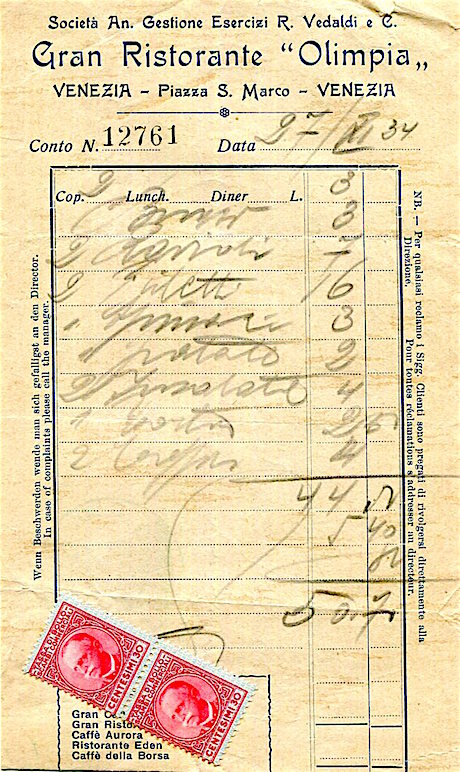 Società An. Gestione Esercizi R. Vedaldi e C.
Gran Ristorante "Olimpia„
VENEZIA - Piazza S. Marco - VENEZIA
Conto N. 12761 Data 27/VI 34
Cop. 2 Lunch. Diner L. 3
3
2 7
2 Filetti 16
1 3
1 Patate 2
2 Insalate 4
1 Torta 2,50
2 4
44
5 40
50
Wenn Beschwerden wende man sich gefälligst an den Director.
In case of complaints please call the manager.
NB. — Per qualsiasi reclamo i Sigg. Clienti sono pregati di rivolgersi direttamente alla Direzione.
Pour toutes réclamations s'addresser au directeur.
CENTESIMI 30
CENTESIMI 30
Gran
Gran Risto
Caffè Aurora
Ristorante Eden
Caffè della Borsa